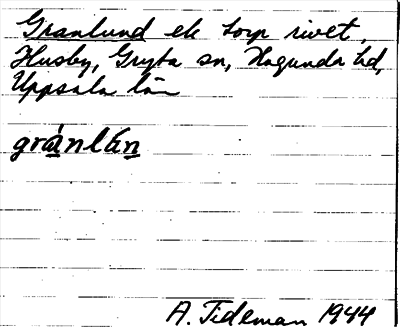 Granlund ek torp rivet,
Husby, Gryta sn, Hagunda hd,
Uppsala län
grànlún
A. Tideman 1944